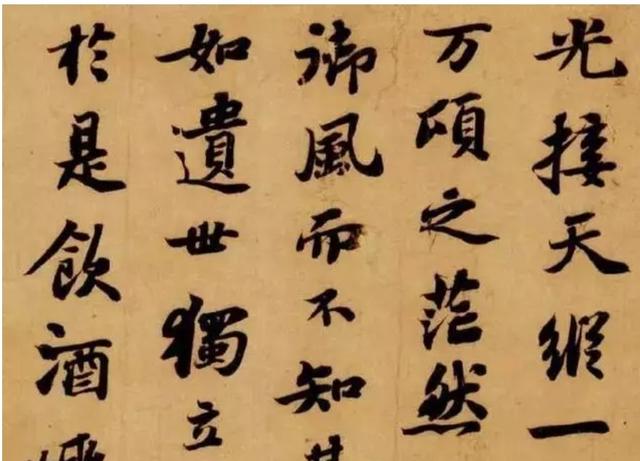 光接天縱一
万頃之茫然
御風而不知其
如遺世獨立
於是飲酒樂